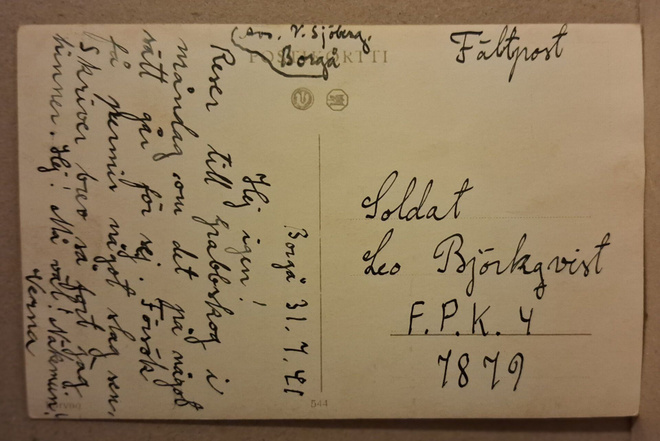 avs. V. Sjöberg,
Borgå
POSTIKORTTI
Fältpost
Borgå 31.7.41
Hej igen!
Reser till Grabbskog i
måndag om det på något
sätt går för sej. Försök
få permis något slag sen.
Skriver brev så fort jag
hinner. Hej! Må väl!
Verna
Soldat
Leo Björkqvist
F.P.K. 4
7879
544